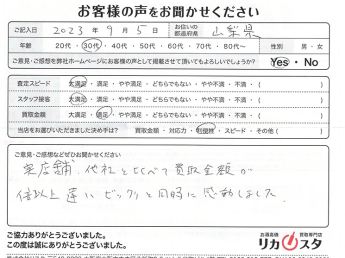 お客様の声をお聞かせください
ご記入日 2023年 9月 5日 お住いの都道府県 山梨県
年齢 20代・30代・40代・50代・60代・70代・80代〜 性別 男・女
ご意見・ご感想を弊社ホームページにお客様の声として掲載させて頂いてもよろしいでしょうか? Yes・No
査定スピード 大満足・満足・やや満足・どちらでもない・やや不満・不満・( )
スタッフ接客 大満足・満足・やや満足・どちらでもない・やや不満・不満・( )
買取金額 大満足・満足・やや満足・どちらでもない・やや不満・不満・( )
当店をお選びいただきました決め手は? 買取金額・対応力・利便性・スピード・その他( )
ご意見・ご感想などぜひお聞かせください
実店舗、他社と比べて買取金額が
倍以上違い ビックリと同時に感動しました。
ご協力ありがとうございました。
この度は誠にありがとうございました。
お酒高価 買取専門店
リカスタ